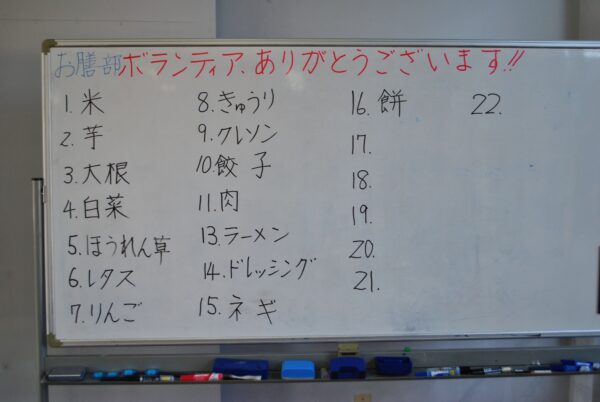 お膳部ボランティア、ありがとうございます!!
1. 米
2. 芋
3. 大根
4. 白菜
5. ほうれん草
6. レタス
7. りんご
8. きゅうり
9. クレソン
10. 餃子
11. 肉
13. ラーメン
14. ドレッシング
15. ネギ
16. 餅
17.
18.
19.
20.
21.
22.